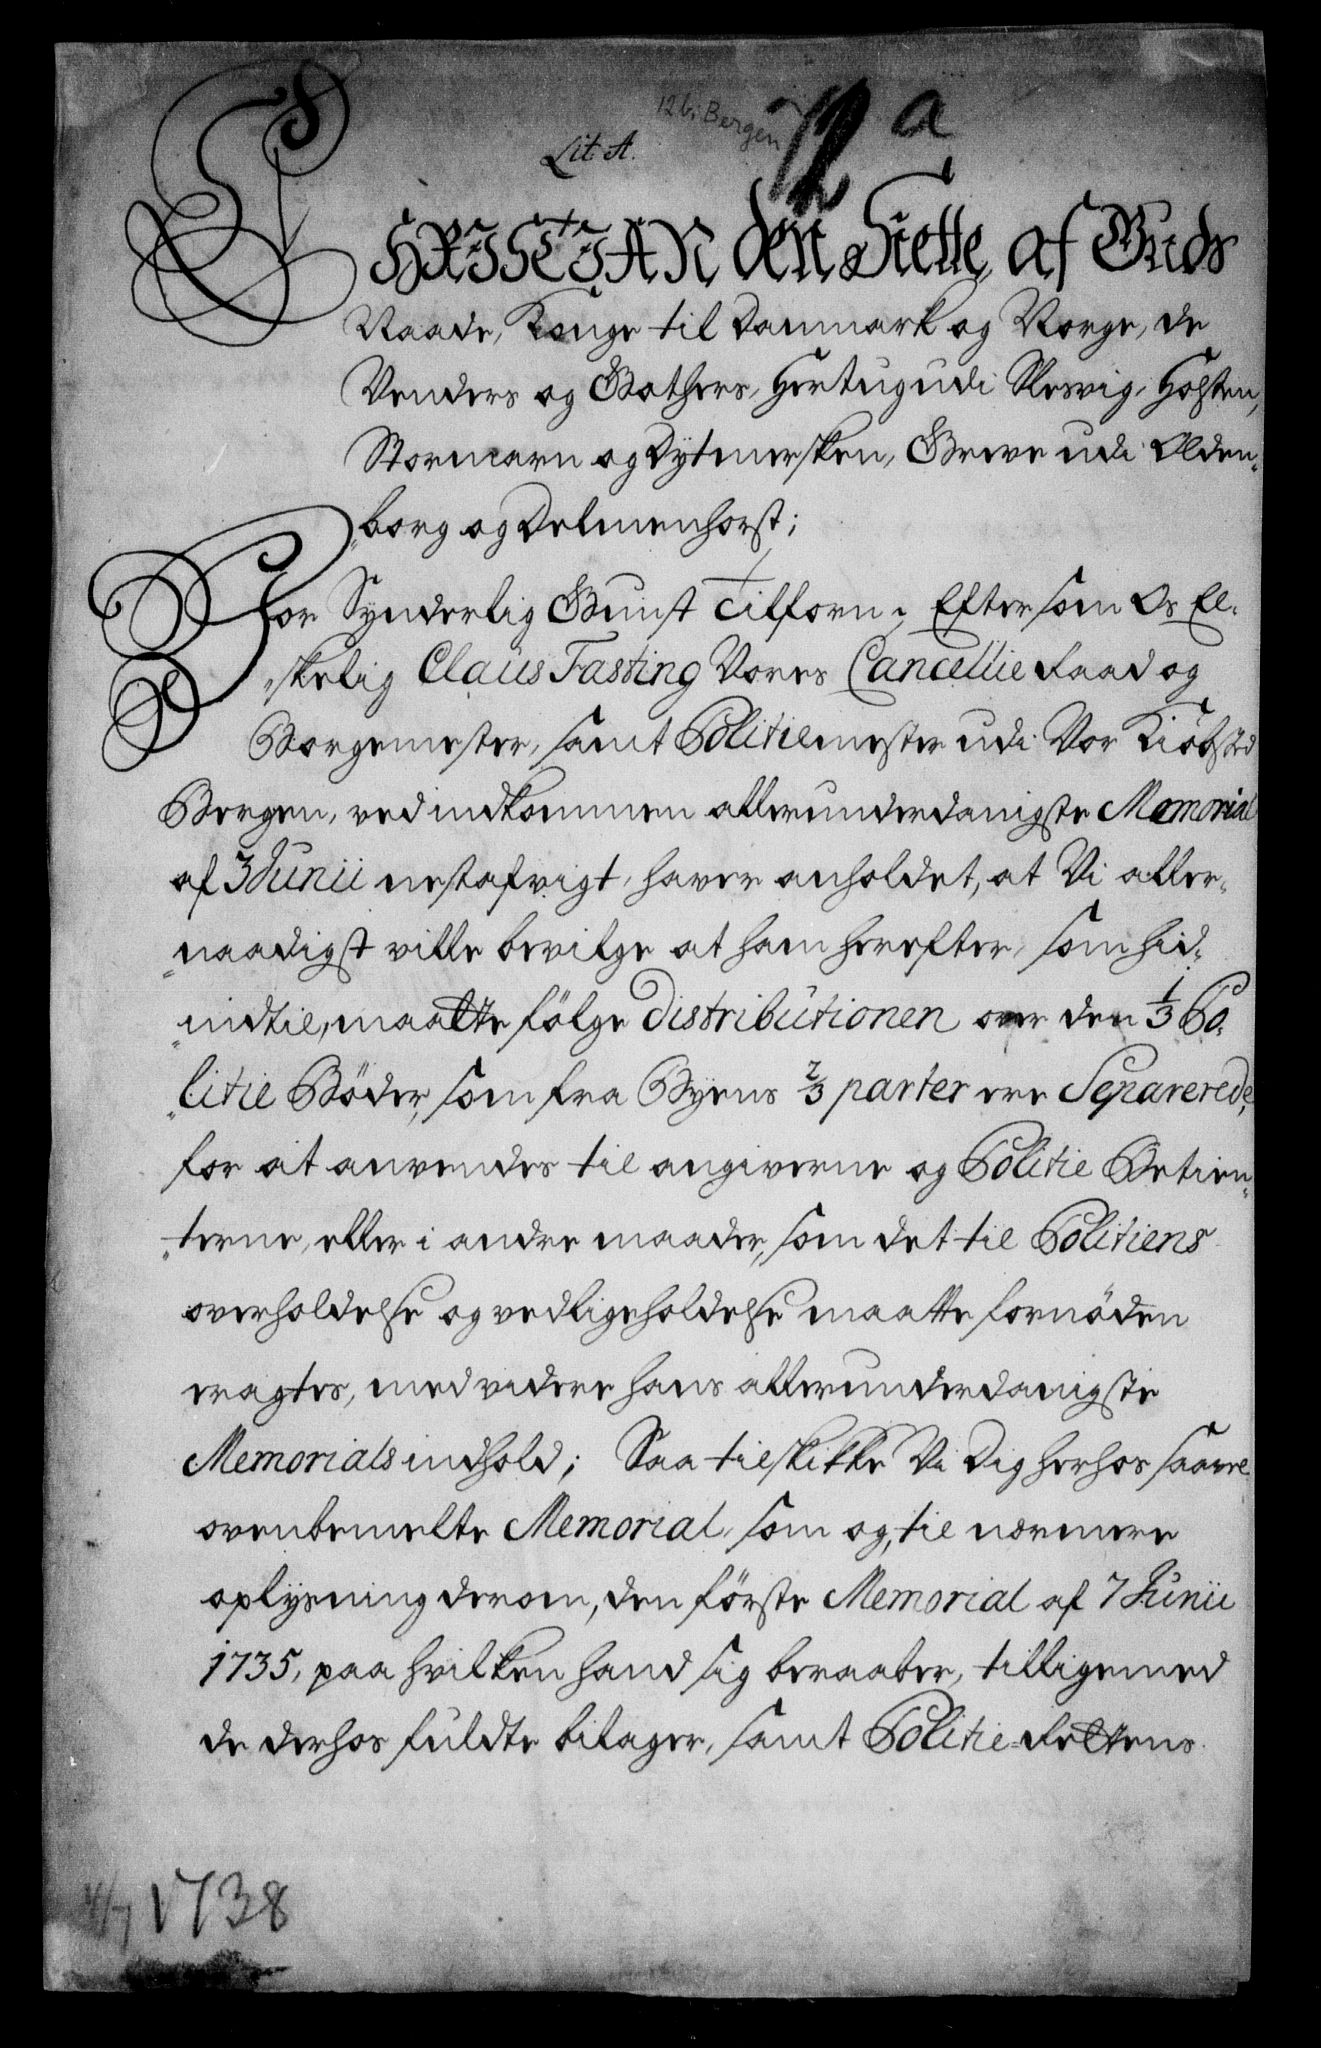 12 b; Bergen
12 a
Lit A.
CHRISTIAN den Siette, af Guds
Naade, Konge til Danmark og Norge, de
Venders og Gothers, Hertug udi Slesvig, Holsten,
Stormarn og Dytmersken, Greve udi Olden-
borg og Delmenhorst;
Vor Synderlig Gunst Tilforn; Eftersom Os El-
skelig Claus Fasting Vores Cancellie Raad og
Borgemester, samt Politiemester udi Vor Kiøbsted
Bergen, ved indkommen allerunderdanigste Memorial
af 3 Junii nestafvigt, haver anholdet, at Vi aller-
naadigst ville bevilge at ham herefter, som hid-
indtil, maatte følge Distributionen over den 1/3 Po-
litie Bøder, som fra Byens 2/3 parter ere Separerede,
for at anvendes til angiverne og Politie Betien-
terne, eller i andre maader, som det til Politiens
overholdelse og vedligeholdelse maatte fornøden
eragtes, med videre hans allerunderdanigste
Memorials indhold; Saa tilskikke Vi Dig herhos saavel
ovenbemelte Memorial, som og, til nærmere
oplysning derom, den første Memorial af 7 Junii
1735, paa hvilken hand sig beraaber, tilligemed
de derhos fuldte bilager, samt Politie-Rettens
4/7 1738